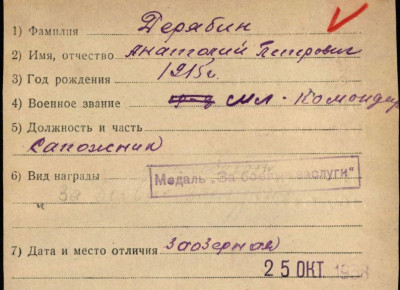 1) Фамилия Дерябин
2) Имя, отчество Анатолий Петрович
3) Год рождения 1915г.
4) Военное звание мл. Командир
5) Должность и часть
Сапожник
6) Вид награды Медаль „За боевые заслуги"
7) Дата и место отличия Заозерная
25 ОКТ